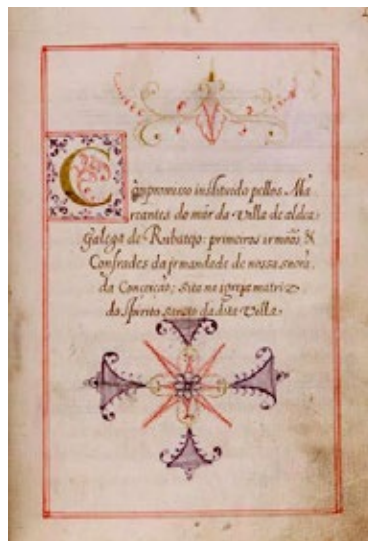 Compromisso instituido pellos Ma
reantes do mór da Villa de aldea
Galega de Ribatejo: primeiros irmãos &
Confrades da jrmandade de nossa snorã.
da Conceição; Sita na igreja matriz
do spirito sancto da dita Villa.